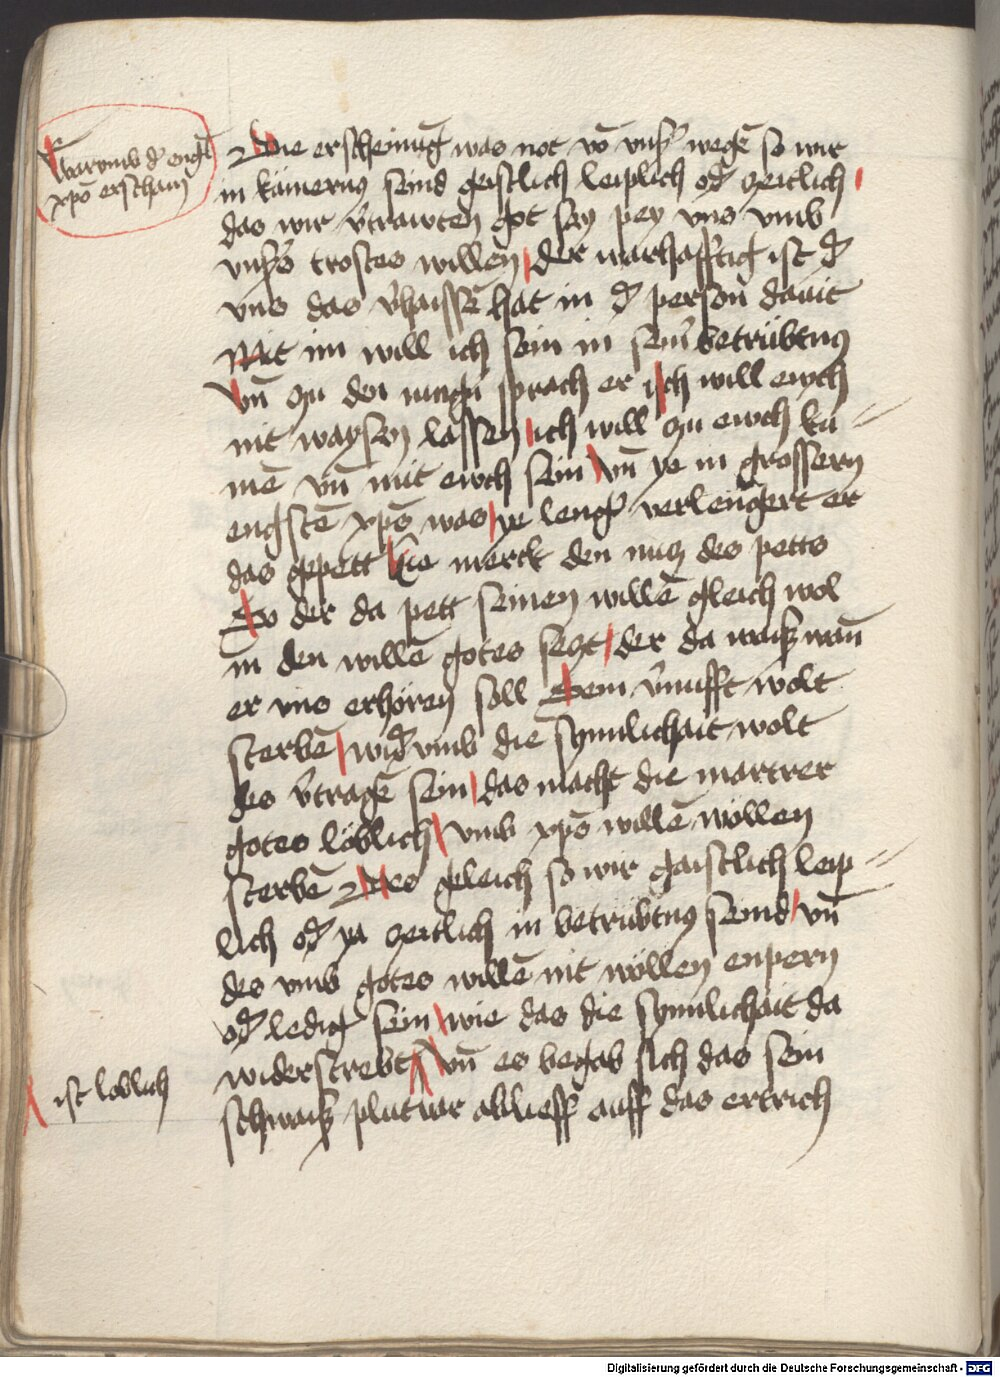 Warumb d' engl
xpō erschain
Die erscheinūg was not vō vnß' wegē so wir
in kümernuß seind geistlich leiplich od' zeitlich
das wir v'trawten got sey pey vns vmb
vnß's trostes willen der warhafftig ist d'
vns das v'haissē hat in d' person dauit
Mit im will ich sein in sein' betrübtnuß
Vn̄ zu den iungn̄ sprach er ich will ewch
nit waysen lassen ich will zu ewch ku=
mē vn̄ mit ewch sein Vn̄ ye in grossern
engstē xpō was ye leng' verlengert er
das gepett Hie merck den nutz des petts
So der da pett seinen willē gleich wol
in den willē gotes setzt der da waiß wan̄
er vns erhören soll Sein v'nufft wolt
sterbē wid'vmb die synnlichait wolt
des v'tragē sein das macht die martrer
gotes löblich vmb xpō willē wöllen
sterbē Des gleich so wir gaistlich leip=
lich od' ya zeitlich in betrübtnuß seind vn̄
des vmb gotes willē nit wöllen enpern
od' ledig sein wie das die synnlichait da
widerstrebt Vn̄ es begab sich das sein
ist loblich
schwaiß plutvar ablieff auff das ertrich
Digitalisierung gefördert durch die Deutsche Forschungsgemeinschaft - DFG